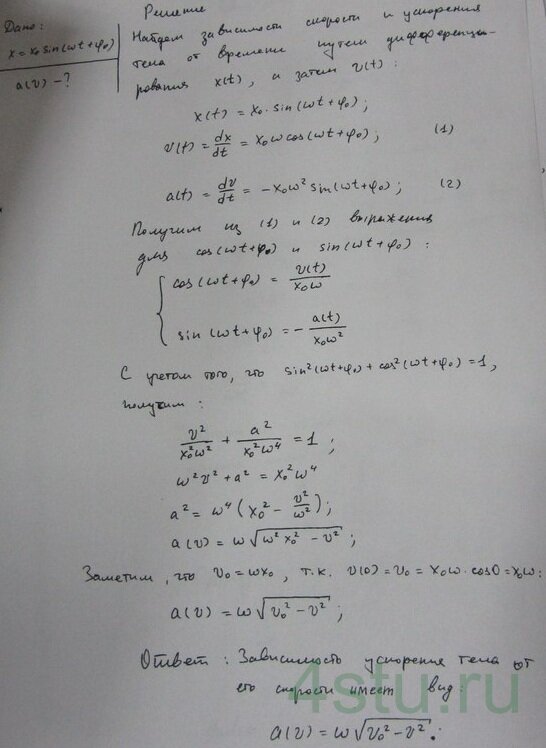 Дано:
x = x₀ sin(ωt+φ₀)
a(v) - ?
Решение
Найдем зависимости скорости и ускорения
тела от времени путем дифференци-
рования x(t), и затем v(t):
x(t) = x₀·sin(ωt+φ₀);
v(t) = dx/dt = x₀ω cos(ωt+φ₀); (1)
a(t) = dv/dt = -x₀ω² sin(ωt+φ₀); (2)
Получим из (1) и (2) выражения
для cos(ωt+φ₀) и sin(ωt+φ₀):
cos(ωt+φ₀) = v(t)/x₀ω
sin(ωt+φ₀) = - a(t)/x₀ω²
С учетом того, что sin²(ωt+φ₀)+cos²(ωt+φ₀)=1,
получим:
v²/x₀²ω² + a²/x₀²ω⁴ = 1;
ω²v² + a² = x₀²ω⁴
a² = ω⁴(x₀² - v²/ω²);
a(v) = ω√(ω²x₀² - v²);
Заметим, что v₀ = ωx₀, т.к. v(0)=v₀ = x₀ω·cos0=x₀ω:
a(v) = ω√(v₀² - v²);
Ответ: Зависимость ускорения тела от
его скорости имеет вид:
a(v) = ω√(v₀² - v²).
4stu.ru